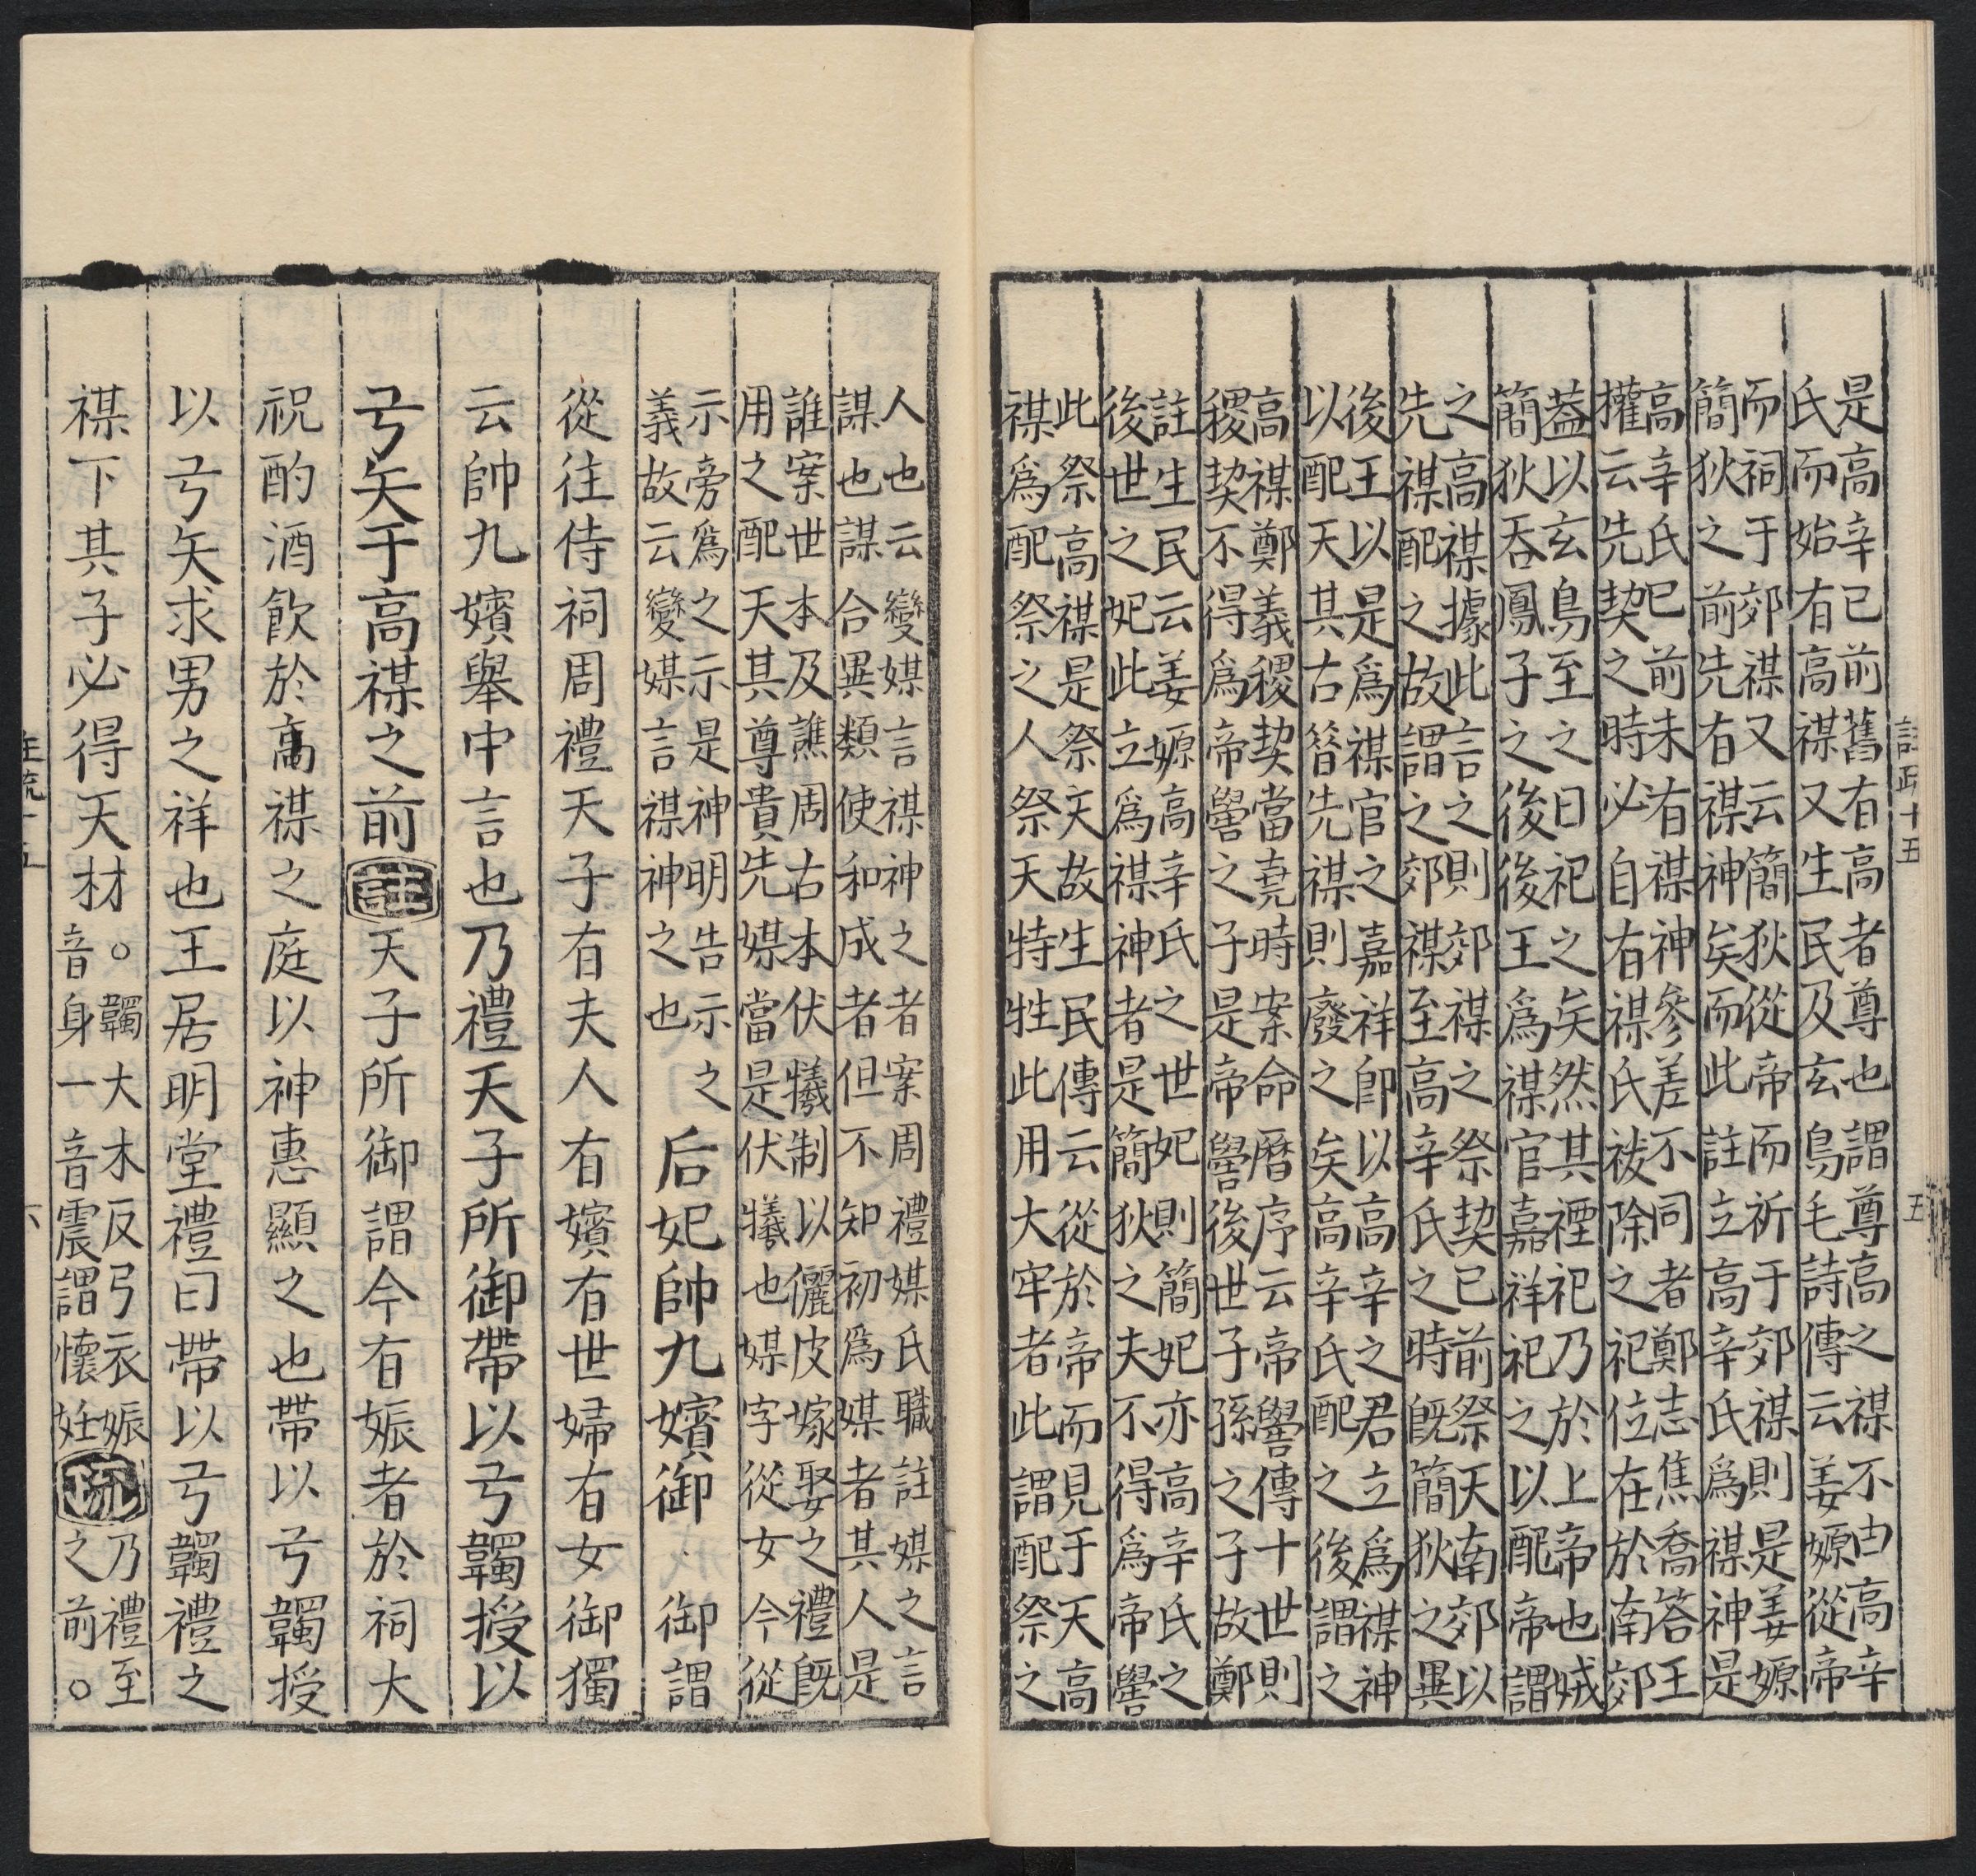 是高辛已前舊有高者尊也謂尊高之禖不由高辛
氏而始有高禖又生民及玄鳥毛詩傳云姜嫄從帝
而祠于郊禖又云簡狄從帝而祈于郊禖則是姜嫄
簡狄之前先有禖神矣而此註立高辛氏爲禖神是
高辛氏已前未有禖神參差不同者鄭志焦喬荅王
權云先契之時必自有禖氏祓除之祀位在於南郊
葢以玄鳥至之日祀之矣然其禋祀乃於上帝也娀
簡狄吞鳳子之後後王爲禖官嘉祥祀之以配帝謂
之高禖據此言之則郊禖之祭契已前祭天南郊以
先禖配之故謂之郊禖至高辛氏之時旣簡狄之異
後王以是爲禖官之嘉祥卽以高辛之君立爲禖神
以配天其古簮先禖則廢之矣高辛氏配之後謂之
高禖鄭義稷契當堯時案命曆序云帝嚳傳十世則
稷契不得爲帝嚳之子是帝嚳後世子孫之子故鄭
註生民云姜嫄高辛氏之世妃則簡妃亦高辛氏之
後世之妃此立爲禖神者是簡狄之夫不得爲帝嚳
此祭高禖是祭天故生民傳云從於帝而見于天高
禖爲配祭之人祭天特牲此用大牢者此謂配祭之
註疏十五
五
人也云變媒言禖神之者案周禮媒氏職註媒之言
謀也謀合異類使和成者但不知初爲媒者其人是
誰案世本及譙周古本伏犧制以儷皮嫁娶之禮旣
用之配天其尊貴先媒當是伏犧也媒字從女今從
示旁爲之示是神明告示之
義故云變媒言禖神之也
后妃帥九嬪御 御謂
從往侍祠周禮天子有夫人有嬪有世婦有女御獨
云帥九嬪舉中言也乃禮天子所御帶以弓韣授以
弓矢于高禖之前註天子所御謂今有娠者於祠大
祝酌酒飮於高禖之庭以神惠顯之也帶以弓韣授
以弓矢求男之祥也王居明堂禮曰帶以弓韣禮之
禖下其子必得天材
○韣大木反弓衣娠
音身一音震謂懷妊
疏
乃禮至
之前○
註疏十五
六